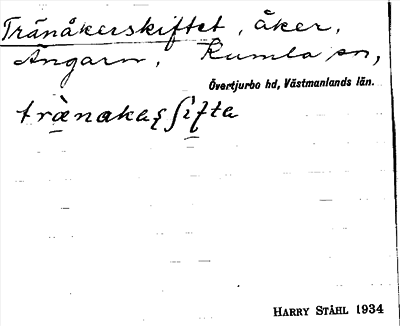 Tränåkerskiftet, åker,
Ängarn, Kumla sn,
Övertjurbo hd, Västmanlands län.
HARRY STÅHL 1934